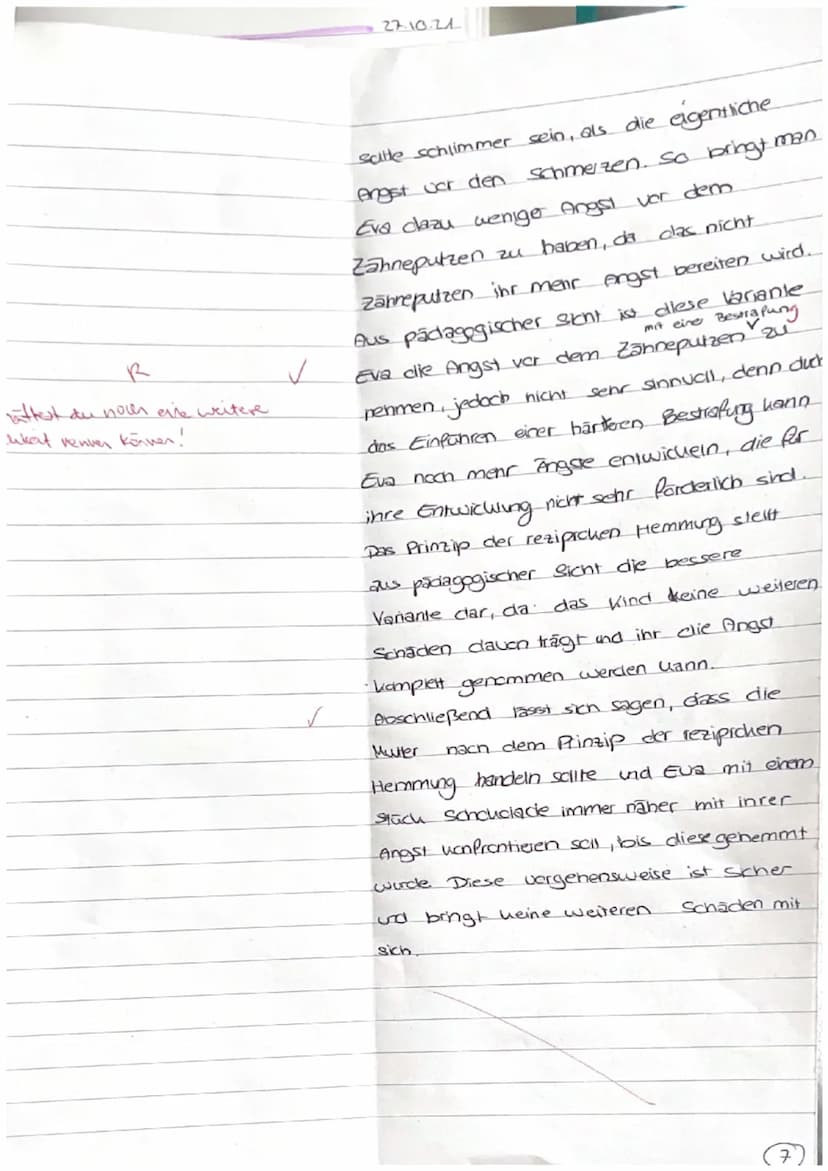 27.10.21
sollte schlimmer sein, als die eigentliche
Angst vor den Schmerzen. So bringt man
Eva dazu weniger Angst vor dem
Zähneputzen zu haben, da das nicht
Zähneputzen ihr mehr Angst bereiten wird.
Aus pädagogischer Sicht ist diese Variante
mit einer Bestrafung
Eva die Angst vor dem Zähneputzen zu
R ✓
nehmen, jedoch nicht sehr sinnvoll, denn durch
hättest du noch eine weitere
das Einführen einer härteren Bestrafung kann
nennen können!
Eva noch mehr Ängste entwickeln, die für
ihre Entwicklung nicht sehr förderlich sind.
Das Prinzip der reziproken Hemmung stellt
aus pädagogischer Sicht die bessere
Variante dar, da das Kind keine weiteren
Schäden davon trägt und ihr die Angst
komplett genommen werden kann.
✓ Abschließend lässt sich sagen, dass die
Mutter nach dem Prinzip der reziproken
Hemmung handeln sollte und Eva mit einem
Stück Schokolade immer näher mit ihrer
Angst konfrontieren soll, bis diese gehemmt
wurde. Diese Vorgehensweise ist sicher
und bringt keine weiteren Schäden mit
sich.
7